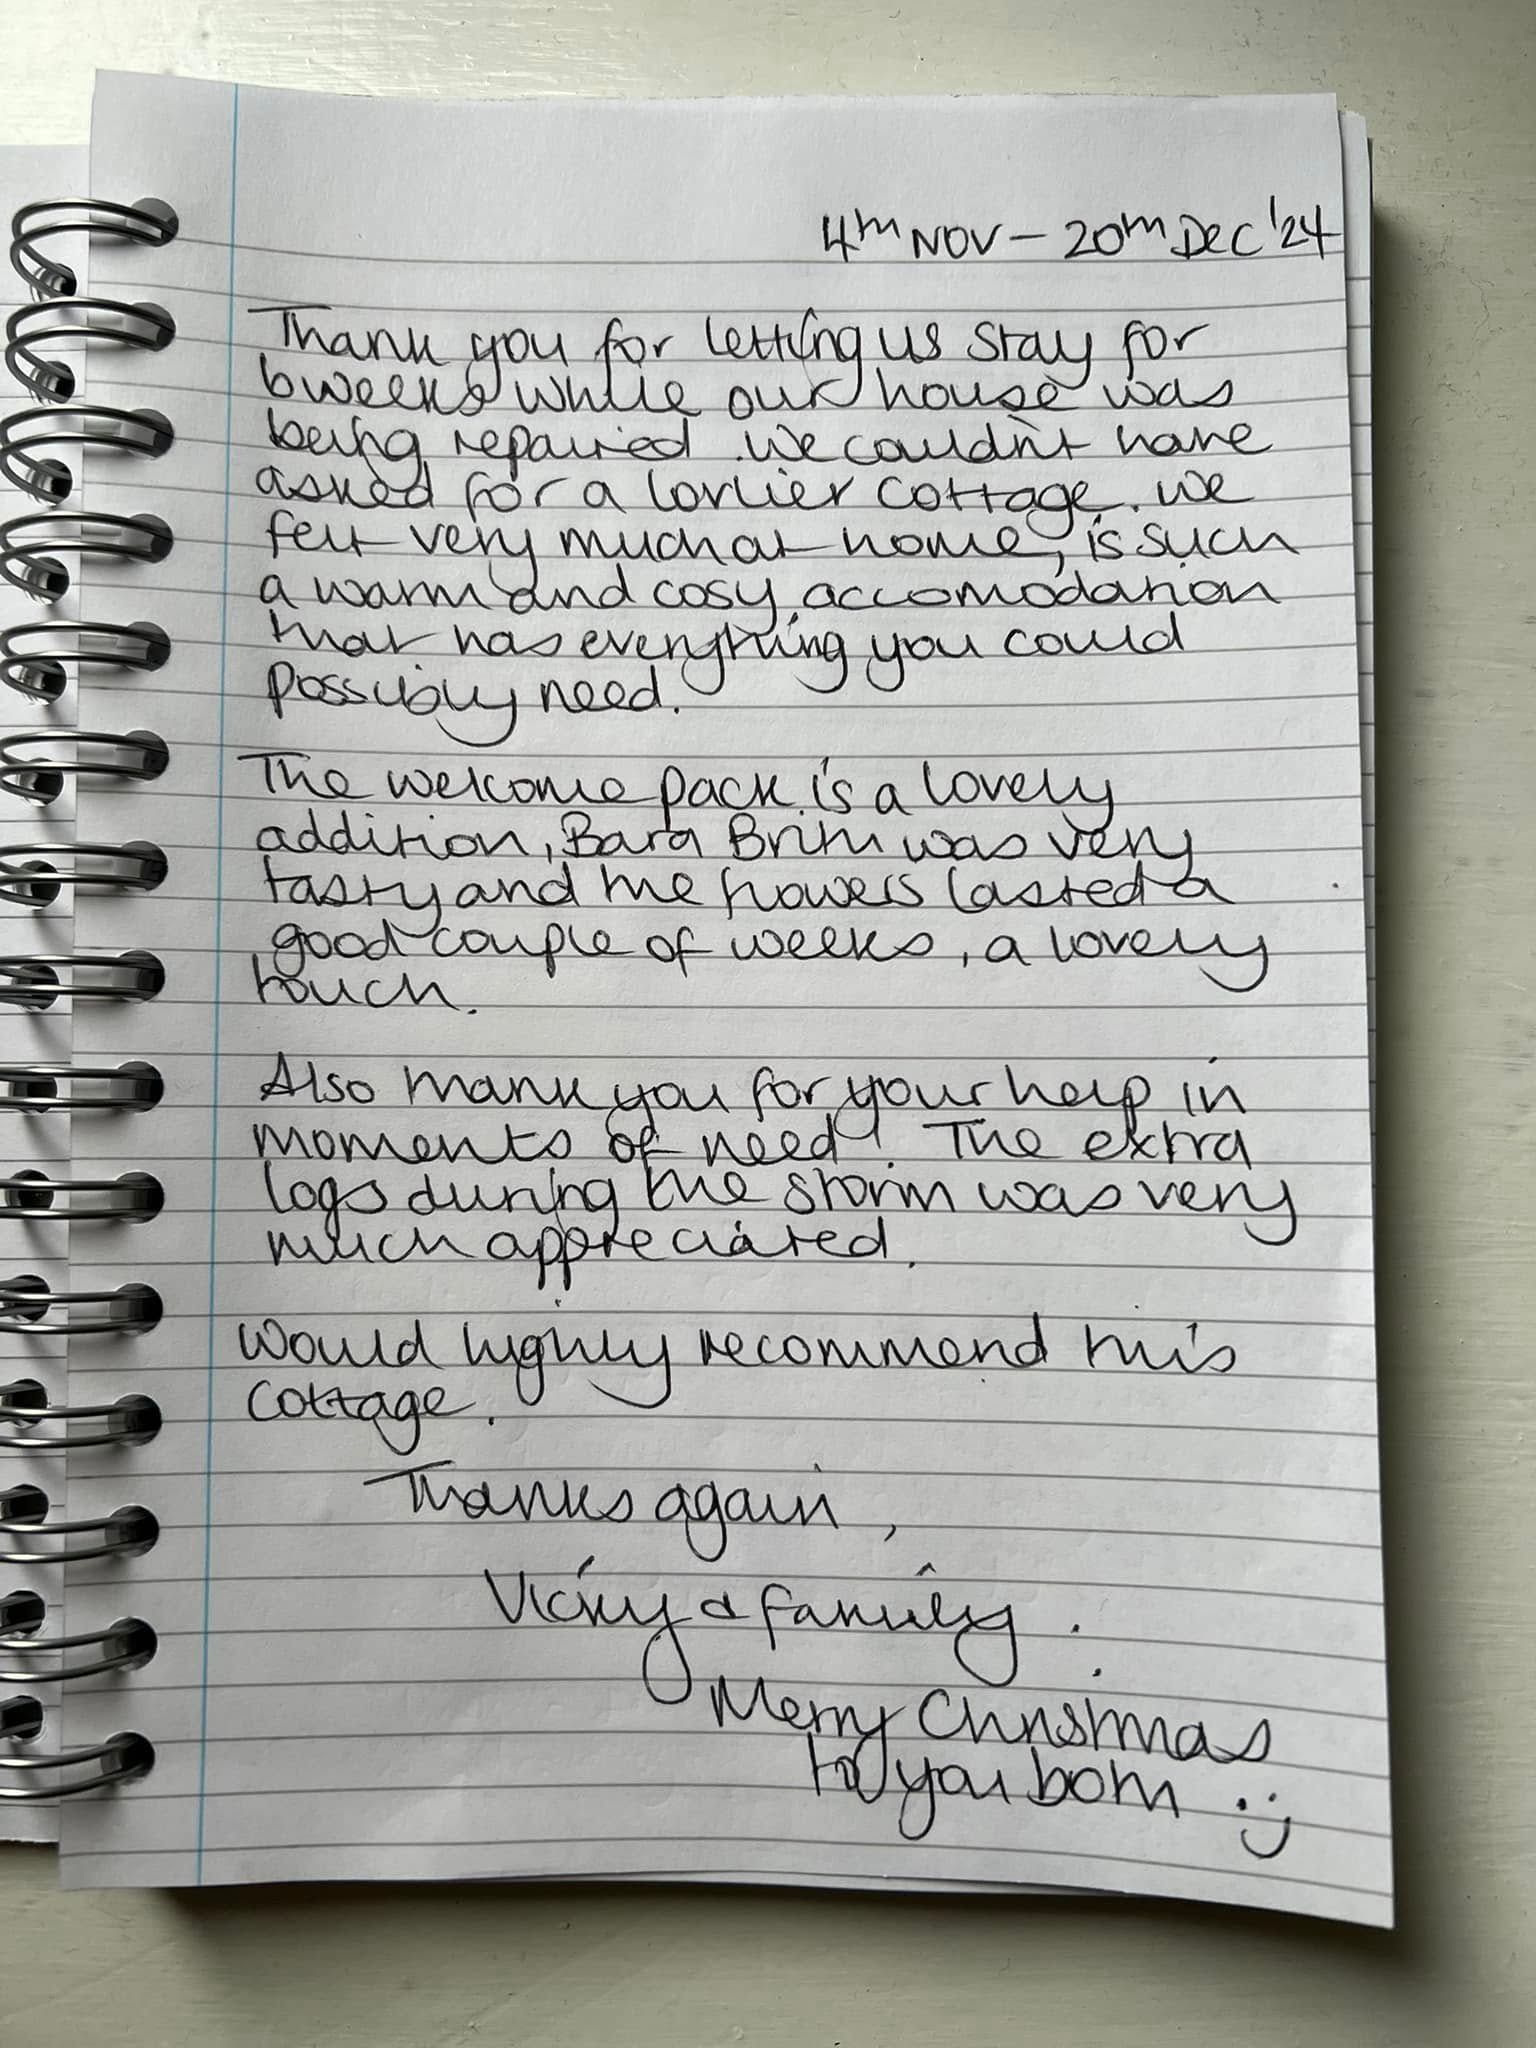 4th NOV - 20th DEC '24
Thank you for letting us stay for
6 weeks while our house was
being repaired. We couldn't have
asked for a lovlier cottage. We
felt very much at home, is such
a warm and cosy accomodation
that has everything you could
possibly need.
The welcome pack is a lovely
addition, Bara Brith was very
tasty and the flowers lasted a
good couple of weeks, a lovely
touch.
Also thank you for your help in
moments of need! The extra
logs during the storm was very
much appreciated.
Would highly recommend this
cottage.
Thanks again,
Vicky & family.
Merry Christmas
to you both :)